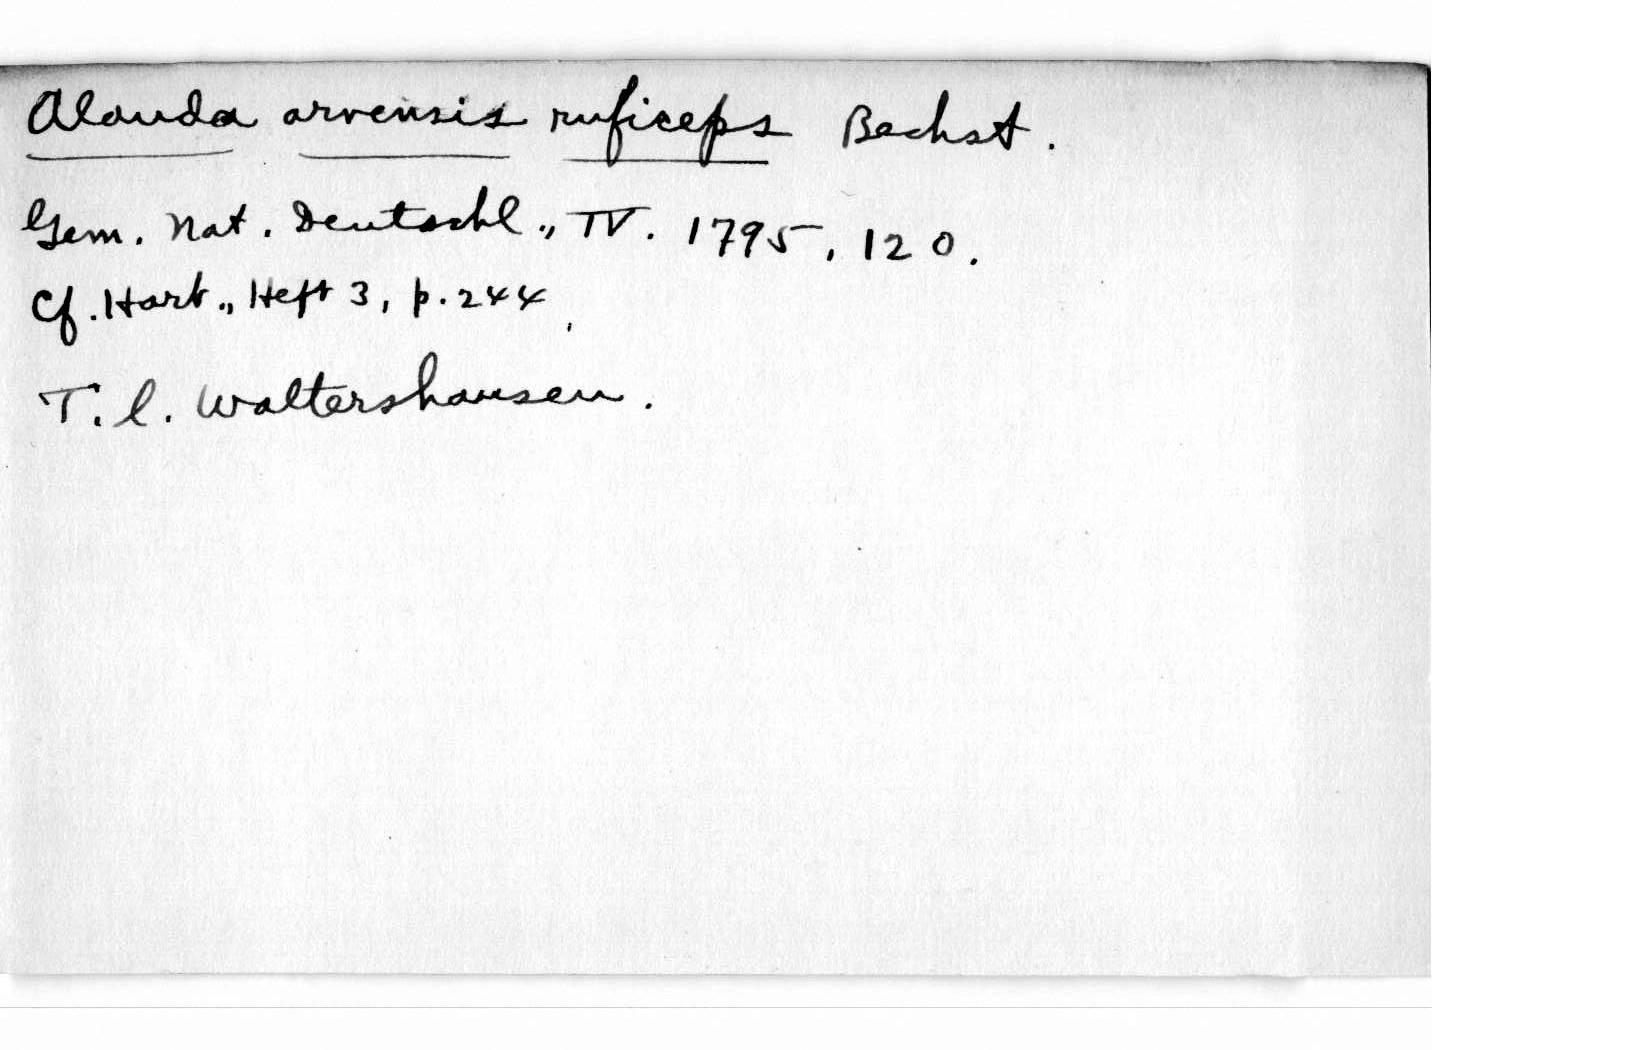 Alauda arvensis ruficeps Bechst.
Gem. Nat. Deutschl., IV. 1795, 120.
Cf. Hart., Heft 3, p. 244,
T. l. Waltershausen.